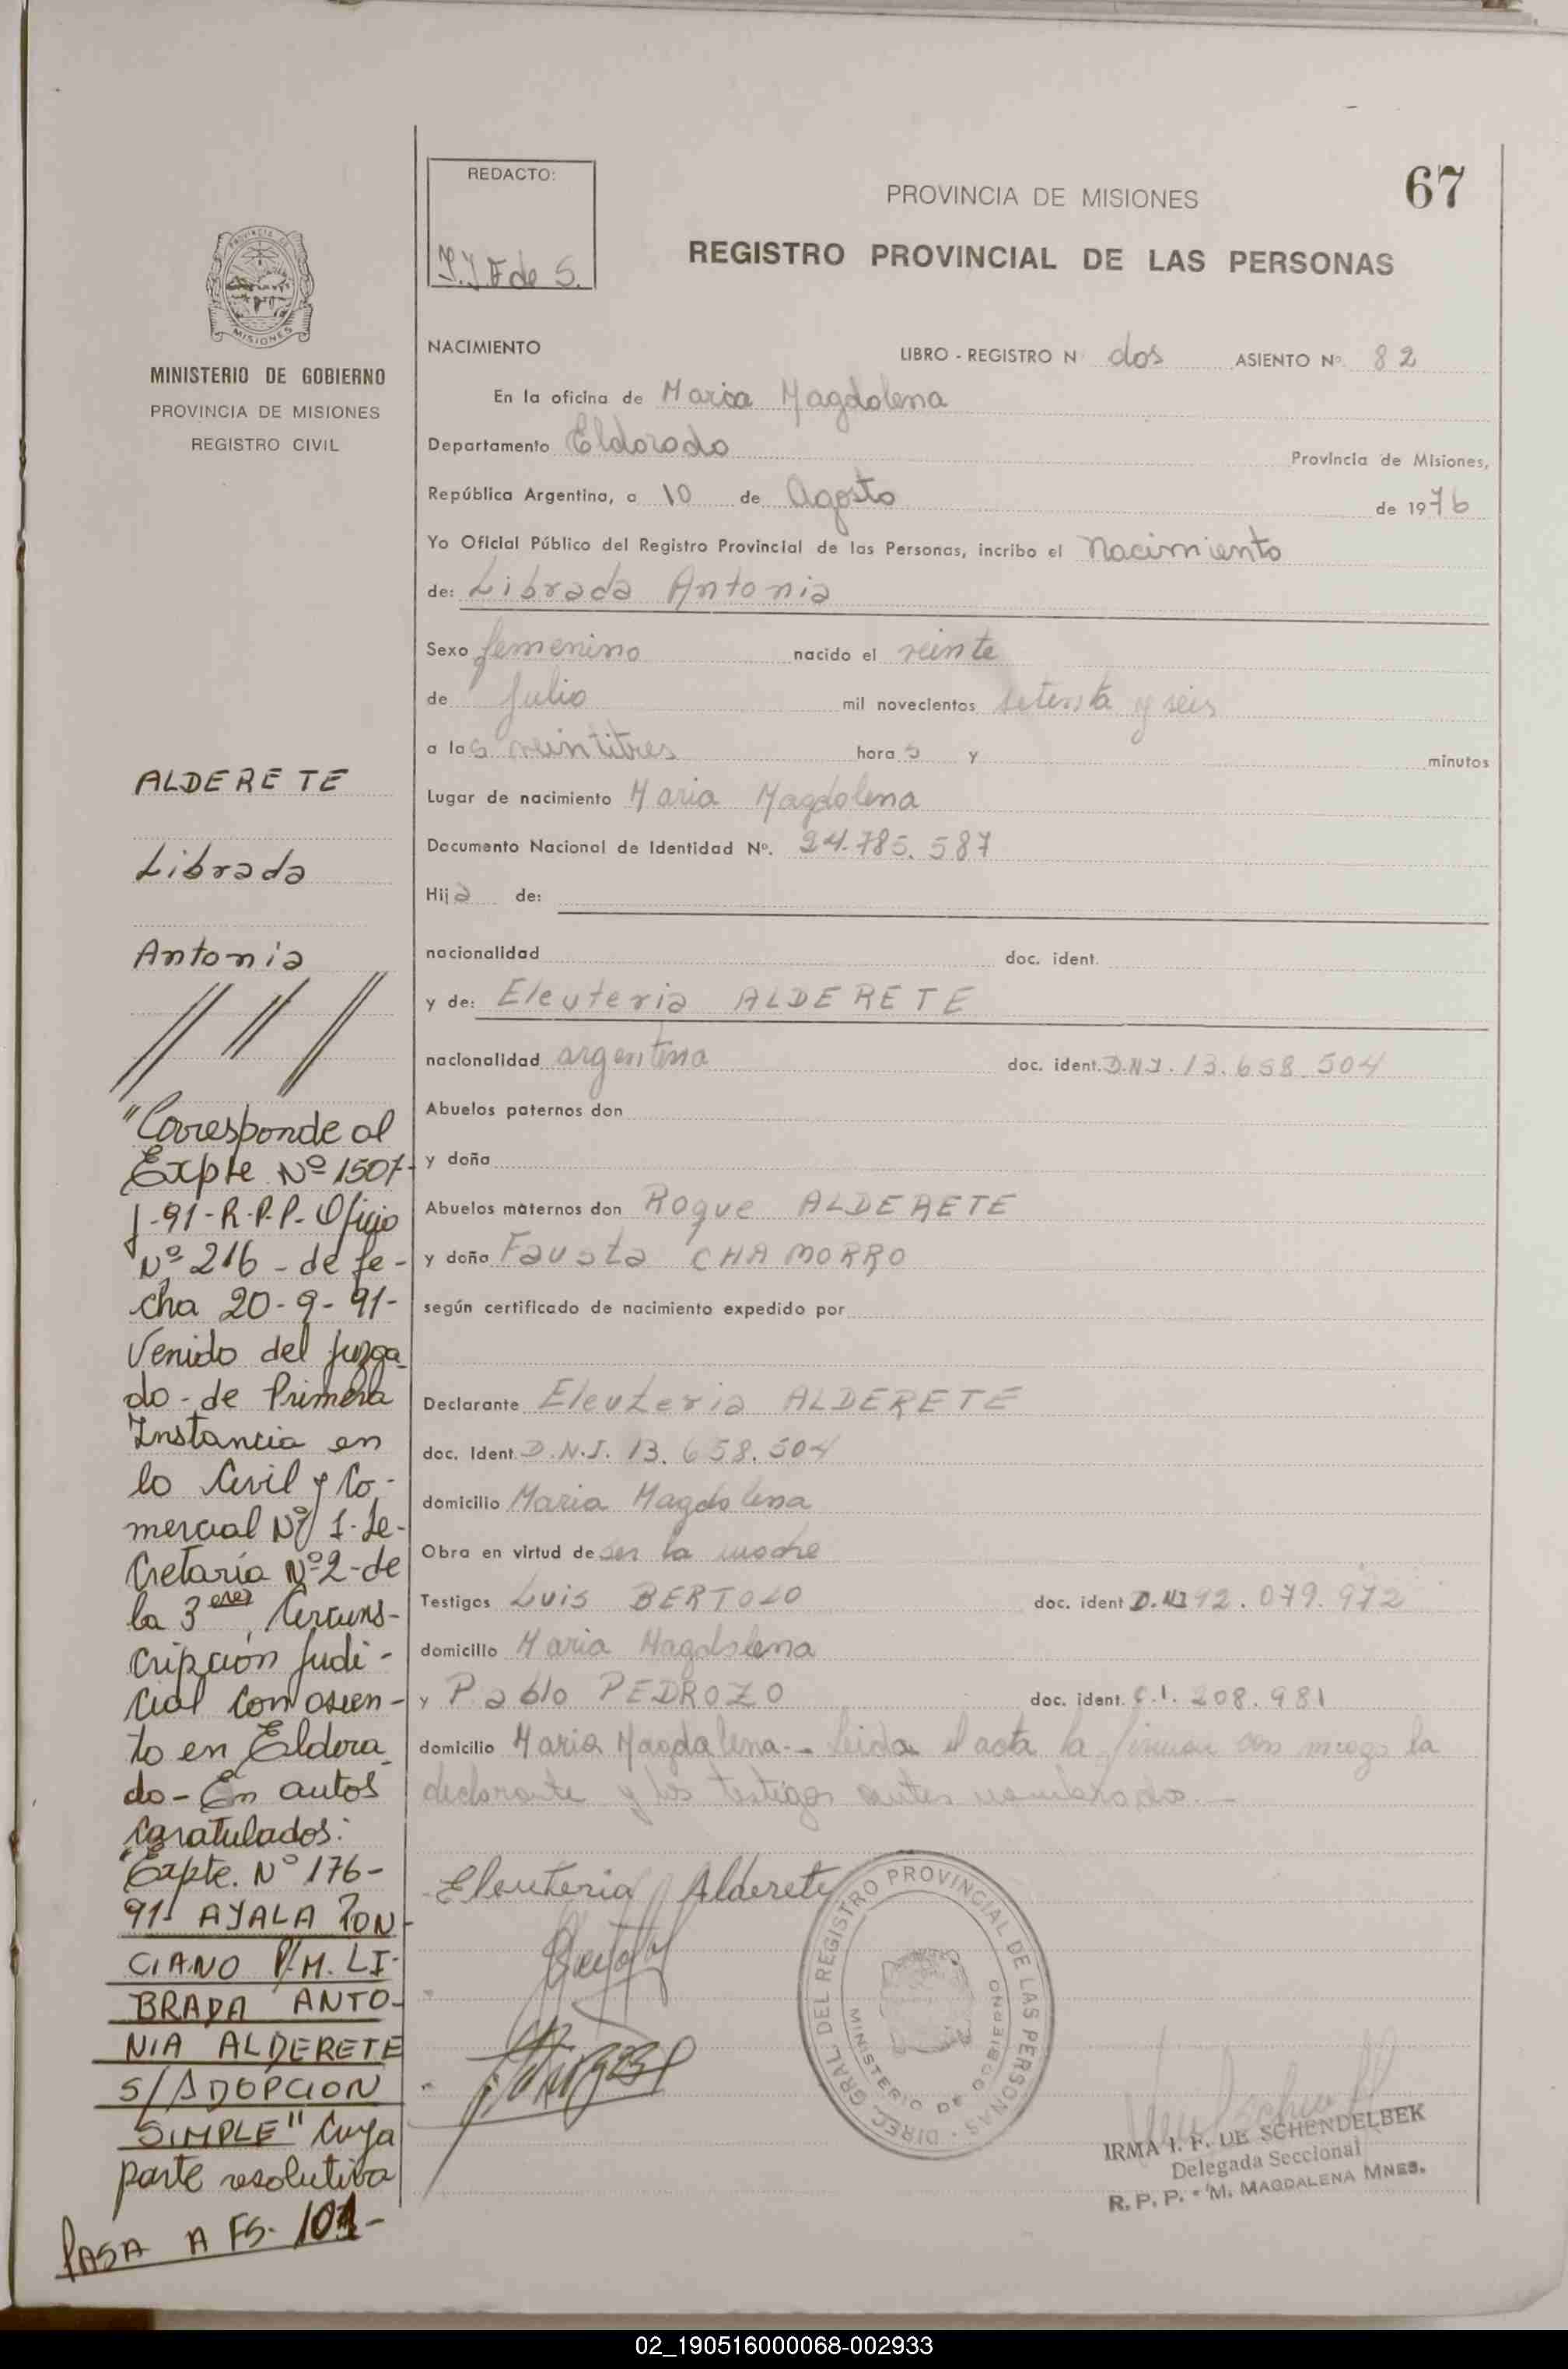 67
REDACTO:
PROVINCIA DE MISIONES
REGISTRO PROVINCIAL DE LAS PERSONAS
PROVINCIA DE
MISIONES
MINISTERIO DE GOBIERNO
PROVINCIA DE MISIONES
REGISTRO CIVIL
NACIMIENTO LIBRO - REGISTRO N dos ASIENTO Nº. 82
En la oficina de Maria Magdalena
Departamento Eldorado Provincia de Misiones,
República Argentina, a 10 de Agosto de 1976
Yo Oficial Público del Registro Provincial de las Personas, incribo el Nacimiento
de: Librada Antonia
Sexo femenino nacido el veinte
de Julio mil novecientos setenta y seis
a las veintitres horas y minutos
Lugar de nacimiento Maria Magdalena
Documento Nacional de Identidad Nº. 24.785.587
Hija de:
nacionalidad doc. ident.
y de: Eleuteria ALDERETE
nacionalidad argentina doc. ident. D.N.I. 13.658.504
Abuelos paternos don
y doña
Abuelos maternos don Roque ALDERETE
y doña Fausta CHAMORRO
según certificado de nacimiento expedido por
Declarante Eleuteria ALDERETE
doc. Ident. D.N.I. 13.658.504
domicilio Maria Magdalena
Obra en virtud de ser la madre
Testigos Luis BERTOLO doc. ident D.NI 92.079.972
domicilio Maria Magdalena
y Pablo PEDROZO doc. ident. C.I. 208.981
domicilio Maria Magdalena.- Leida el acta la firman con migo la
declarante y los testigos antes nombrados.-
Eleuteria Alderete
DIREC. GRAL DEL REGISTRO PROVINCIAL DE LAS PERSONAS
MINISTERIO DE GOBIERNO
IRMA I. F. DE SCHENDELBEK
Delegada Seccional
R. P. P. - M. MAGDALENA MNES.
ALDERETE
Librada
Antonia
"Corresponde al
Expte Nº 1507-
J-91-R.P.P- Oficio
Nº 216 - de fe-
cha 20-9-91-
Venido del Juzga
do - de Primera
Instancia en
lo Civil y Co-
mercial Nº 1-Se-
cretaría Nº2-de
la 3era Circuns-
cripción Judi-
cial con asien-
to en Eldora
do - En autos
caratulados:
"Expte. Nº 176-
91- AYALA PON-
CIANO P/M. LI-
BRADA ANTO-
NIA ALDERETE
S/ADOPCION
SIMPLE" Cuya
parte resolutiva
PASA A FS. 101-
02_190516000068-002933